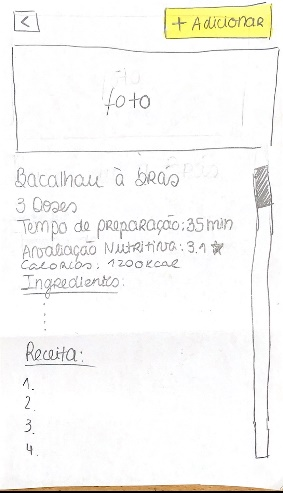 <
+ Adicionar
foto
Bacalhau à Brás
3 Doses
Tempo de preparação: 35 min
Avaliação Nutritiva: 3.1 ★
Calorias: 1200kcal
Ingredientes:
Receita:
1.
2.
3.
4.